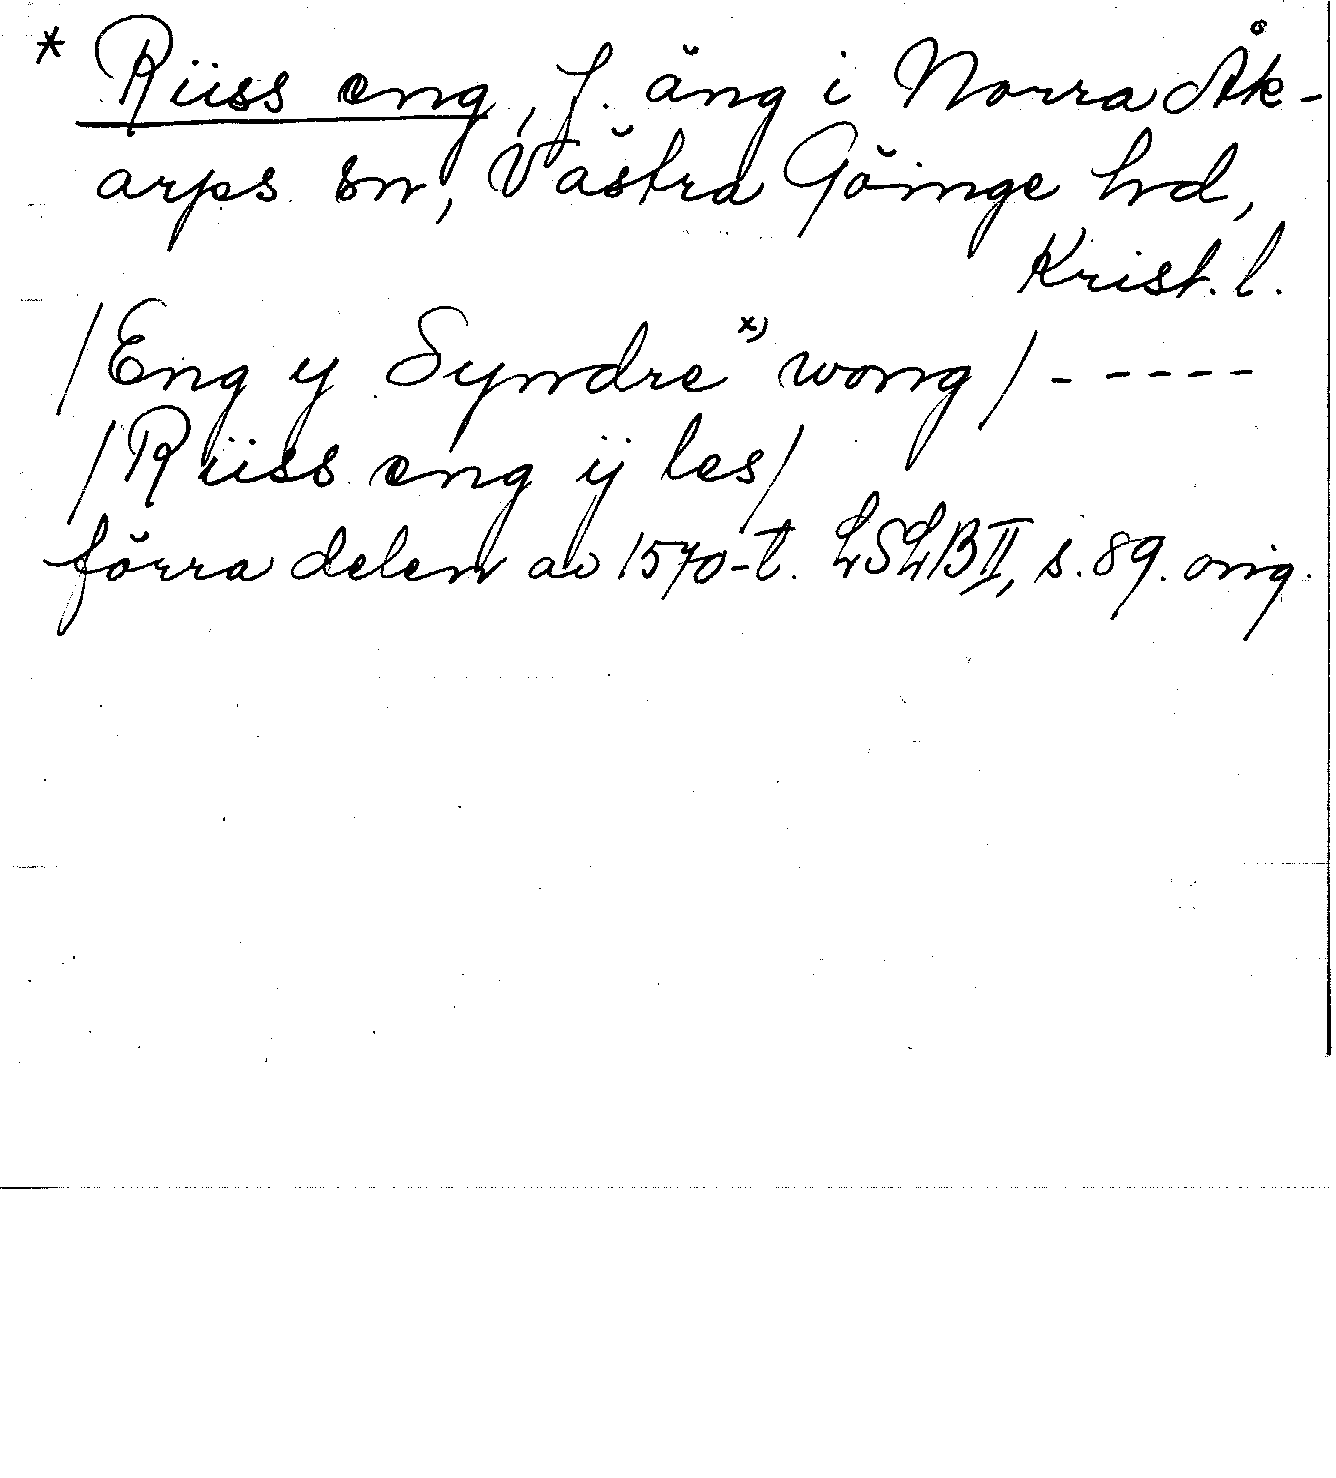 * Riiss eng, f. äng i Norra Åk-
arps sn, Västra Göinge hd,
Krist. l.
/Eng y Syndre x) wong/ - - - - -
/Riiss eng ij les/
förra delen av 1570-t. LSLB II, s. 89. orig.